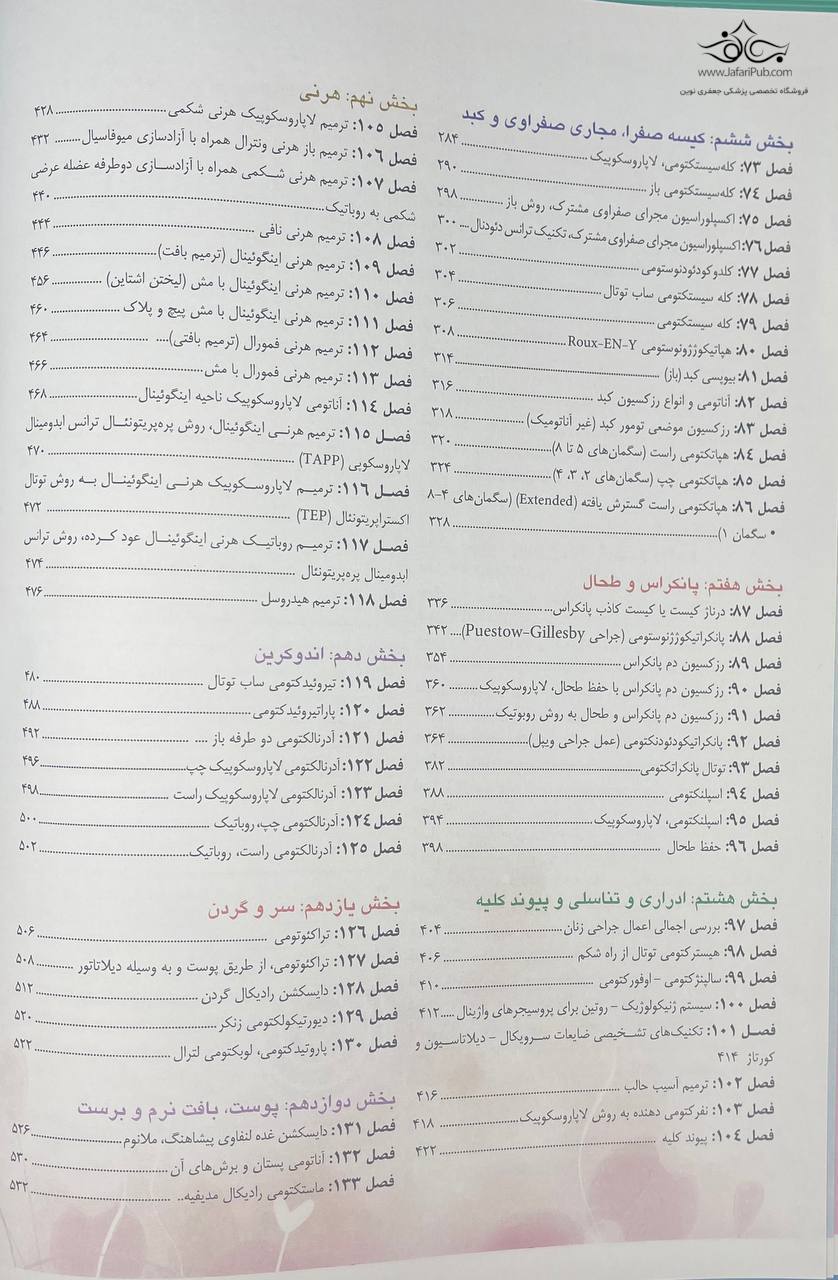 بهاض
www.JafariPub.com
فروشگاه تخصصی پزشکی جعفری نوین
بخش ششم: کیسه صفرا، مجاری صفراوی و کبد
فصل ۷۳: کله‌سیستکتومی، لاپاروسکوپیک ۲۸۴
فصل ۷۴: کله‌سیستکتومی باز ۲۹۰
فصل ۷۵: اکسپلوراسیون مجرای صفراوی مشترک، روش باز ۲۹۸
فصل ۷۶: اکسپلوراسیون مجرای صفراوی مشترک، تکنیک ترانس دئودنال ۳۰۰
فصل ۷۷: کلدوکودئودنوستومی ۳۰۲
فصل ۷۸: کله سیستکتومی ساب توتال ۳۰۴
فصل ۷۹: کله سیستکتومی ۳۰۶
فصل ۸۰: هپاتیکوژژونوستومی Roux-EN-Y ۳۰۸
فصل ۸۱: بیوپسی کبد (باز) ۳۱۴
فصل ۸۲: آناتومی و انواع رزکسیون کبد ۳۱۶
فصل ۸۳: رزکسیون موضعی تومور کبد (غیر آناتومیک) ۳۱۸
فصل ۸۴: هپاتکتومی راست (سگمان‌های ۵ تا ۸) ۳۲۰
فصل ۸۵: هپاتکتومی چپ (سگمان‌های ۲، ۳، ۴) ۳۲۴
فصل ۸۶: هپاتکتومی راست گسترش یافته (Extended) (سگمان‌های ۴-۸
• سگمان ۱) ۳۲۸
بخش هفتم: پانکراس و طحال
فصل ۸۷: درناژ کیست یا کیست کاذب پانکراس ۳۳۶
فصل ۸۸: پانکراتیکوژژنوستومی (جراحی Puestow-Gillesby) ۳۴۲
فصل ۸۹: رزکسیون دم پانکراس ۳۵۴
فصل ۹۰: رزکسیون دم پانکراس با حفظ طحال، لاپاروسکوپیک ۳۶۰
فصل ۹۱: رزکسیون دم پانکراس و طحال به روش روبوتیک ۳۶۲
فصل ۹۲: پانکراتیکودئودنکتومی (عمل جراحی ویپل) ۳۶۴
فصل ۹۳: توتال پانکراتکتومی ۳۸۲
فصل ۹۴: اسپلنکتومی ۳۸۸
فصل ۹۵: اسپلنکتومی، لاپاروسکوپیک ۳۹۴
فصل ۹۶: حفظ طحال ۳۹۸
بخش هشتم: ادراری و تناسلی و پیوند کلیه
فصل ۹۷: بررسی اجمالی اعمال جراحی زنان ۴۰۴
فصل ۹۸: هیسترکتومی توتال از راه شکم ۴۰۶
فصل ۹۹: سالپنژکتومی - اوفورکتومی ۴۱۰
فصل ۱۰۰: سیستم ژنیکولوژیک - روتین برای پروسیجرهای واژینال ۴۱۲
فصل ۱۰۱: تکنیک‌های تشخیصی ضایعات سرویکال - دیلاتاسیون و
کورتاژ ۴۱۴
فصل ۱۰۲: ترمیم آسیب حالب ۴۱۶
فصل ۱۰۳: نفرکتومی دهنده به روش لاپاروسکوپیک ۴۱۸
فصل ۱۰۴: پیوند کلیه ۴۲۲
بخش نهم: هرنی
فصل ۱۰۵: ترمیم لاپاروسکوپیک هرنی شکمی ۴۲۸
فصل ۱۰۶: ترمیم باز هرنی ونترال همراه با آزادسازی میوفاسیال ۴۳۲
فصل ۱۰۷: ترمیم هرنی شکمی همراه با آزادسازی دوطرفه عضله عرضی
شکمی به روباتیک ۴۴۰
فصل ۱۰۸: ترمیم هرنی نافی ۴۴۴
فصل ۱۰۹: ترمیم هرنی اینگوئینال (ترمیم بافت) ۴۴۶
فصل ۱۱۰: ترمیم هرنی اینگوئینال با مش (لیختن اشتاین) ۴۵۶
فصل ۱۱۱: ترمیم هرنی اینگوئینال با مش پیچ و پلاک ۴۶۰
فصل ۱۱۲: ترمیم هرنی فمورال (ترمیم بافتی) ۴۶۴
فصل ۱۱۳: ترمیم هرنی فمورال با مش ۴۶۶
فصل ۱۱۴: آناتومی لاپاروسکوپیک ناحیه اینگوئینال ۴۶۸
فصل ۱۱۵: ترمیم هرنی اینگوئینال، روش پره‌پریتونئال ترانس ابدومینال
لاپاروسکوپی (TAPP) ۴۷۰
فصل ۱۱۶: ترمیم لاپاروسکوپیک هرنی اینگوئینال به روش توتال
اکستراپریتونئال (TEP) ۴۷۲
فصل ۱۱۷: ترمیم روباتیک هرنی اینگوئینال عود کرده، روش ترانس
ابدومینال پره‌پریتونئال ۴۷۴
فصل ۱۱۸: ترمیم هیدروسل ۴۷۶
بخش دهم: اندوکرین
فصل ۱۱۹: تیروئیدکتومی ساب توتال ۴۸۰
فصل ۱۲۰: پاراتیروئیدکتومی ۴۸۸
فصل ۱۲۱: آدرنالکتومی دو طرفه باز ۴۹۲
فصل ۱۲۲: آدرنالکتومی لاپاروسکوپیک چپ ۴۹۶
فصل ۱۲۳: آدرنالکتومی لاپاروسکوپیک راست ۴۹۸
فصل ۱۲۴: آدرنالکتومی چپ، روباتیک ۵۰۰
فصل ۱۲۵: آدرنالکتومی راست، روباتیک ۵۰۲
بخش یازدهم: سر و گردن
فصل ۱۲۶: تراکئوتومی ۵۰۶
فصل ۱۲۷: تراکئوتومی، از طریق پوست و به وسیله دیلاتاتور ۵۰۸
فصل ۱۲۸: دایسکشن رادیکال گردن ۵۱۲
فصل ۱۲۹: دیورتیکولکتومی زنکر ۵۲۰
فصل ۱۳۰: پاروتیدکتومی، لوبکتومی لترال ۵۲۲
بخش دوازدهم: پوست، بافت نرم و برست
فصل ۱۳۱: دایسکشن غده لنفاوی پیشاهنگ، ملانوم ۵۲۶
فصل ۱۳۲: آناتومی پستان و برش‌های آن ۵۳۰
فصل ۱۳۳: ماستکتومی رادیکال مدیفیه ۵۳۲